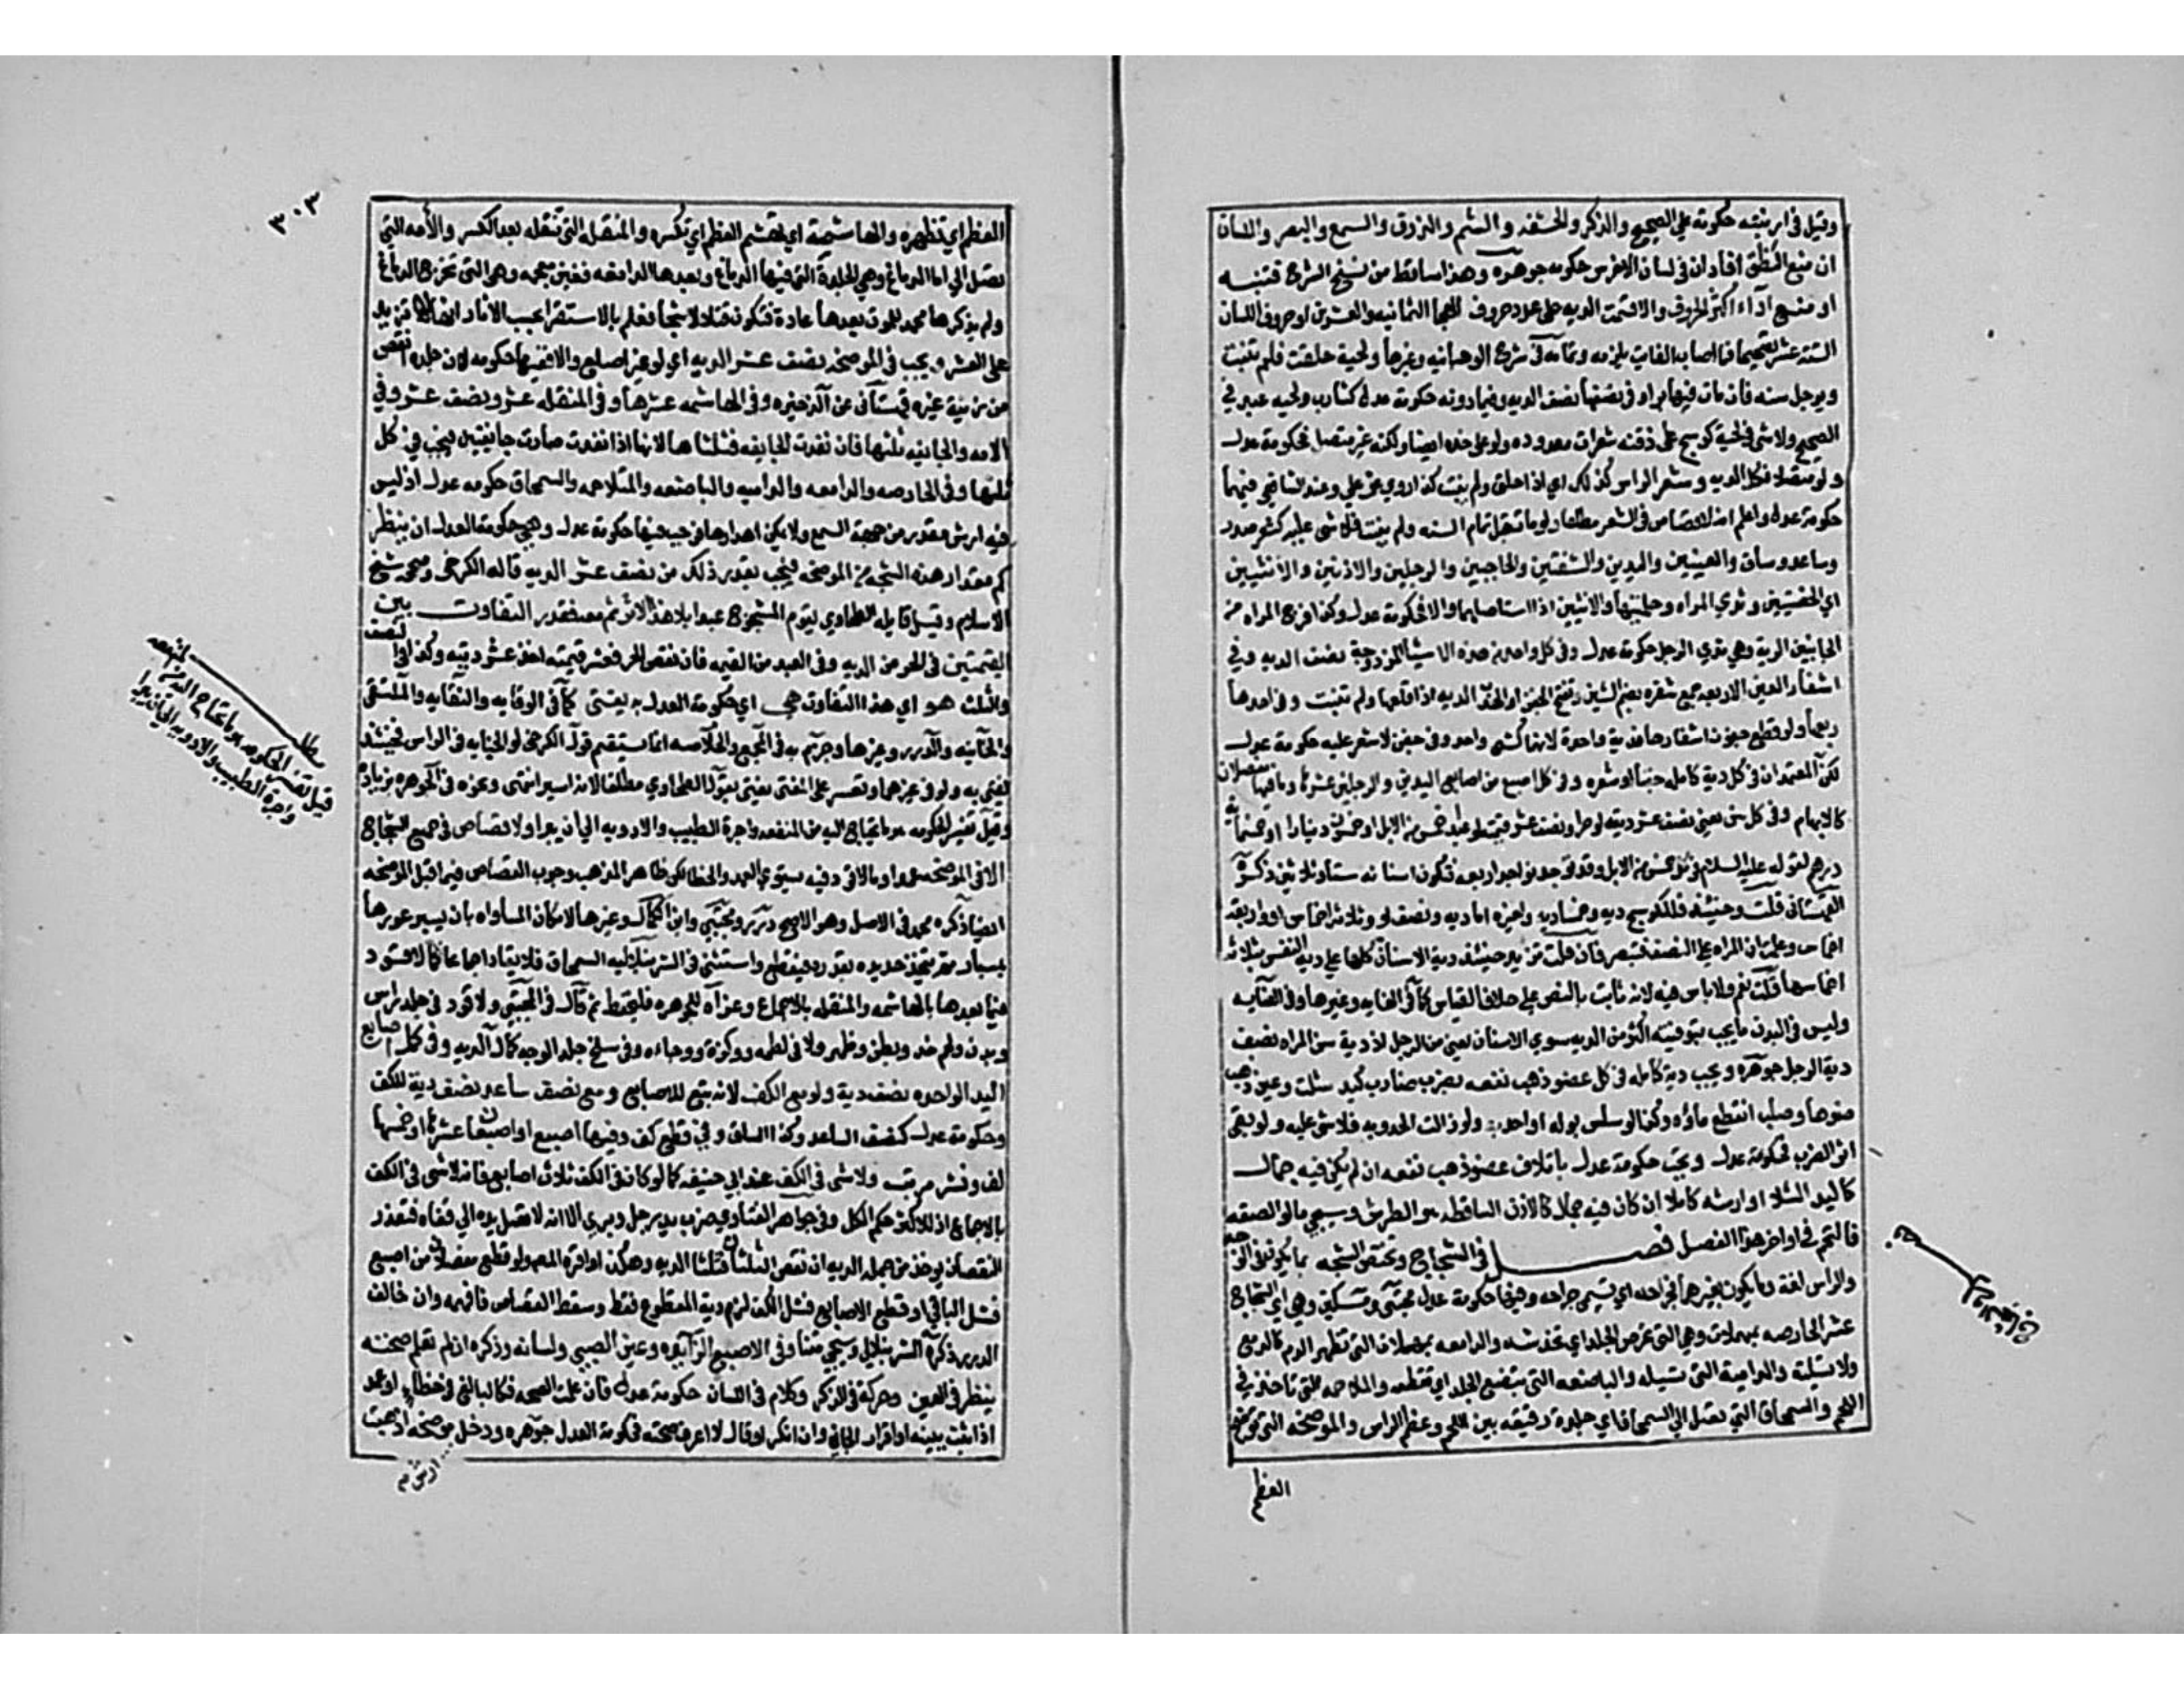 وقيل في ارنبته حكومة على الصحيح والذكر والحشفه والشم والذوق والسمع والبصر واللسان
ان منع النطق افاد ان في لسان الاخرس حكومه جوهره وهذا ساقط من نسخ الشرح فتنبه
او منع اداء اكثر الحروف والا قسمت الديه على عدد حروف الثمانيه والعشرين او حروف اللسان
الستة عشر تصحيحان فما اصاب الفايت يلزمه وتمامه في شرح الوهبانيه وغيرها ولحية حلقت فلم تنبت
ويوجل سنه فان مات فيها برا وفي نصفها نصف الديه وفيما دونه حكومة عدل كشارب ولحيه عبد في
الصحيح ولا شي في لحية كوسج على ذقنه شعرات معدوده ولو على خده ايضا ولكنه غير متصل فحكومة عدل
ولو متصلا فكل الديه وشعر الراس كذلك اي اذا حلق ولم ينبت كذا روي عن علي وعند الشافعي فيهما
حكومة عدل واعلم انه لا قصاص في الشعر مطلقا ولو مات قبل تمام السنه ولم ينبت فلا شي عليه كشعر صدر
وساعد وساق والعينين واليدين والشفتين والحاجبين والرجلين والاذنين والانثيين
اي الخصيتين وثدي المراه وحلمتيها والاليتين اذا استاصلهما والا فحكومة عدل وكذا فرج المراه من
الجانبين الدية وفي ثدي الرجل حكومة عدل وفي كل واحد من هذه الاشيا المزدوجة نصف الديه وفي
اشفار العين الاربعه جمع شفره بضم الشين وتفتح الجفن او الهدب الديه اذا قلعها ولم تنبت وفي احدها
ربعها ولو قطع جفون اشفارها فدية واحدة لانهما كشي واحد وفي جفن لا شعر عليه حكومة عدل
لكن المعتمد ان في كل دية كامله جفنا او شعره وفي كل اصبع من اصابع اليدين والرجلين عشرها وما فيها مفصلان
كالابهام وفي كل سن يعني نصف عشر ديته لو حرا ونصف عشر قيمته لو عبدا خمس من الابل او خمسون دينارا او خمسمايه
درهم لقوله عليه السلام في كل سن خمس من الابل وقد توجد نواجذ اربعه فتكون اسنانه ستا وثلاثين ذكره
القهستاني قلت وحينئذ فللكوسج دية وخمسا ديه ولغيره اما ديه ونصف او وثلاثة اخماس او واربعة
اخماس وعلمت ان المراه على النصف فتبصر فان قلت تزيد حينئذ دية الاسنان كلها على دية النفس بثلاثه
اخماسها قلت نعم ولا باس فيه لانه ثابت بالنص على خلاف القياس كما في الغايه وغيرها وفي العنايه
وليس في البدن ما يجب بتفويته اكثر من الديه سوي الاسنان يعني من الرجل لان دية سن المراه نصف
دية الرجل جوهره ويجب دية كامله في كل عضو ذهب نفعه بضرب ضارب كيد شلت وعين ذهب
ضوءها وصلب انقطع ماؤه وكذا لو سلس بوله او احدبه ولو زالت الحدوبه فلا شي عليه ولو بقي
اثر الضرب فحكومة عدل ويجب حكومة عدل باتلاف عضو ذهب نفعه ان لم يكن فيه جمال
كاليد الشلا او ارشه كاملا ان كان فيه جمال كالاذن الساقطه هو الطرش وسيجي مالو الصقه
فالتحم في اواخر هذا الفصل فصـــــــل في الشجاج وتختص الشجه بما يكون في الوجه
والراس لغة وما يكون بغيرهما فجراحه اي تسمى جراحه وفيها حكومة عدل مجتبى ومسكين وهي اي الشجاج
عشر الحارصه بمهملات وهي التي تحرص الجلد اي تخدشه والدامعه بمهملات التي تظهر الدم كالدمع
ولا تسيله والدامية التي تسيله والباضعه التي تبضع الجلد اي تقطعه والمتلاحمه التي تاخذ في
اللحم والسمحاق التي تصل الى السمحاق اي جلدة رقيقه بين اللحم وعظم الراس والموضحه التي توضح
العظم
٣٠٣
العظم اي تظهره والهاشمة اي تهشم العظم اي تكسره والمنقله التي تنقله بعد الكسر والامه التي
تصل الى ام الدماغ وهي الجلدة التي فيها الدماغ وبعدها الدامغه بغين معجمه وهي التي تخرج الدماغ
ولم يذكرها محمد للموت بعدها عادة فتكون قتلا لا شجا فعلم بالاستقرا بحسب الاثار انها لا تزيد
على العشر ويجب في الموضحه نصف عشر الديه اي لو غير اصلع والا ففيها حكومه لان جلده انقص
من زينة غيره قهستاني عن الذخيره وفي الهاشمه عشرها وفي المنقله عشر ونصف عشر وفي
الامه والجايفه ثلثها فان نفدت الجايفه فثلثاها لانها اذا نفدت صارت جايفتين فيجب في كل
ثلثها وفي الحارصه والدامعه والداميه والباضعه والمتلاحمه والسمحاق حكومه عدل اذ ليس
فيه ارش مقدر من جهة السمع ولا يمكن اهدارها فوجب فيها حكومة عدل وهي حكومة العدل ان ينظر
كم مقدار هذه الشجه من الموضحه فيجب بقدر ذلك من نصف عشر الديه قاله الكرخي وصححه شيخ
الاسلام وقيل قايله الطحاوي يقوم المشجوج عبدا بلا هذا الاثر ثم معه فقدر التفاوت بين
القيمتين في الحر من الديه وفي العبد من القيمه فان نقص الحر عشر قيمته اخذ عشر ديته وكذا في النصف
والثلث هو اي هذا التفاوت هي اي حكومة العدل به يفتى كما في الوقايه والنقايه والملتقى
والخانيه والدرر وغيرها وجزم به في المجمع والخلاصه انما يستقيم قول الكرخي لو الجنايه في الراس فحينئذ
يفتي به ولو في غيرهما او تعسر على المفتى يفتى بقول الطحاوي مطلقا لانه ايسر انتهى ونحوه في الجوهره بزيادة
وقيل تفسير الحكومه هو ما يحتاج اليه من النفقه واجرة الطبيب والادويه الى ان يبرا ولا قصاص في جميع الشجاج
الا في الموضحه عمدا وما لا قود فيه يستوي العمد والخطا لكن ظاهر المذهب وجوب القصاص فيما قبل الموضحه
ايضا ذكره محمد في الاصل وهو الاصح درر ومجتبى وابن الكمال وغيرها لامكان المساواه بان يسبر غورها
بمسبار ثم يتخذ حديده بقدره فيقطع واستثنى في الشرنبلاليه السمحاق فلا يقاد اجماعا كما لا قود
فيما بعدها بالهاشمه والمنقله بالاجماع وعزاه للجوهره فليحفظ ثم قال في المجتبى ولا قود في جلد راس
وبدن ولحم خد وبطن وظهر ولا في لطمه ووكزة ووجاءه وفي سلخ جلد الوجه كمال الديه وفي كل اصابع
اليد الواحده نصف دية ولو مع الكف لانه تبع للاصابع ومع نصف ساعد نصف دية للكف
وحكومة عدل كنصف الساعد وكذا الساق وفي قطع كف وفيها اصبع او اصبعان عشرها او خمسها
لف ونشر مرتب ولا شي في الكف عند ابي حنيفه كما لو كان في الكف ثلاث اصابع فانه لا شي في الكف
بالاجماع اذ للاكثر حكم الكل وفي جواهر الفتاوي ضرب يد رجل وبري الا انه لا تصل يده الى قفاه فبقدر
النقصان يوخذ من جمله الديه ان نقص الثلثان فثلثا الديه وهكذا واقره المص ولو قطع مفصلا من اصبع
فشل الباقي او قطع الاصابع فشل الكف لزم دية المقطوع فقط وسقط القصاص فافهمه وان خالف
الدرر ذكره الشرنبلالي وسيجي متنا وفي الاصبع الزايده وعين الصبي ولسانه وذكره ان لم تعلم صحته
بنظر في العين وحركة في الذكر وكلام في اللسان حكومة عدل فان علمت الصحه فكالبالغ في خطا او عمد
اذا ثبت ببينه او اقرار الجاني وان انكر او قال لا اعرف صحته فحكومة العدل جوهره ودخل موضحه اذهبت
ارش
مطلب
قيل تفسير الحكومه هو ما يحتاج اليه من النفقه
واجرة الطبيب والادويه الى ان يبرا